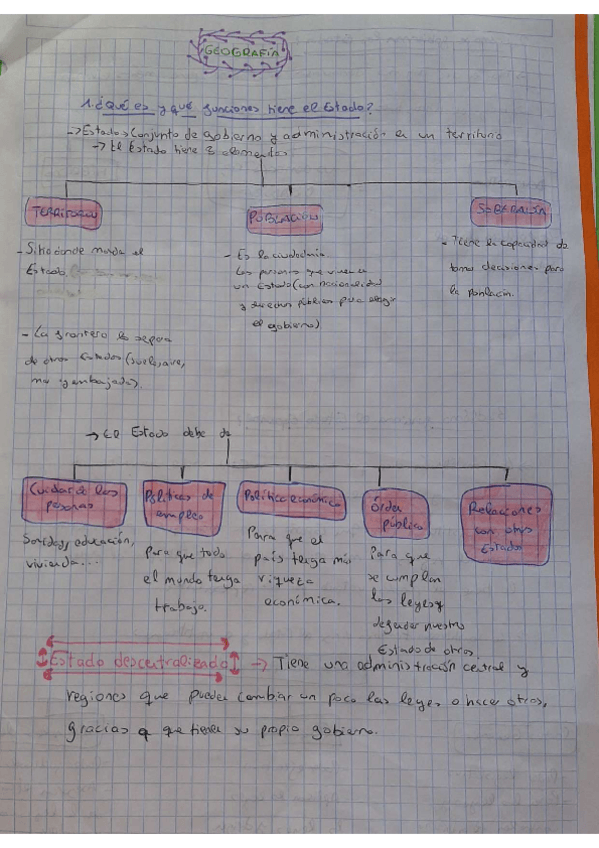 GEOGRAFÍA
1. ¿Qué es y qué funciones tiene el Estado?
→ Estado → Conjunto de gobierno y administración en un territorio
→ El Estado tiene 3 elementos
TERRITORIO
- Sitio donde manda el
Estado.
- La frontera lo separa
de otros Estados (suelo, aire,
mar y embajadas).
POBLACIÓN
- Es la ciudadanía
Las personas que viven en
un Estado (con nacionalidad
y derechos públicos para elegir
el gobierno)
SOBERANÍA
- Tiene la capacidad de
tomar decisiones para
la población.
→ El Estado debe de
Cuidar de las
personas
Sanidad, educación,
vivienda...
Políticas de
empleo
Para que todo
el mundo tenga
trabajo.
Política económica
Para que el
país tenga más
riqueza
económica.
Órden
público
Para que
se cumplan
las leyes y
defender nuestro
Estado de otros
Relaciones
con otros
Estados
Estado descentralizado → Tiene una administración central y
regiones que pueden cambiar un poco las leyes o hacer otras,
gracias a que tienen su propio gobierno.